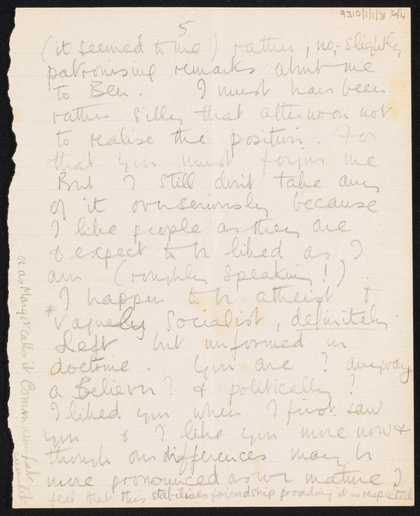 5
(it seemed to me) rather, no, slightly
patronising remarks about me
to Ben. I must have been
rather silly that afternoon not
to realise the position. For
that you must forgive me
But I still don't take any
of it overseriously because
I like people as they are
& expect to be liked as I
am (roughly speaking!).
I happen to be atheist &
* vaguely Socialist, definitely
Left but unformed in
doctrine. You are? anyway
a Believer? & politically?
I liked you when I first saw
you & I like you more now &
though our differences may be
more pronounced as we mature I
feel that this stabilises friendship providing it is respected